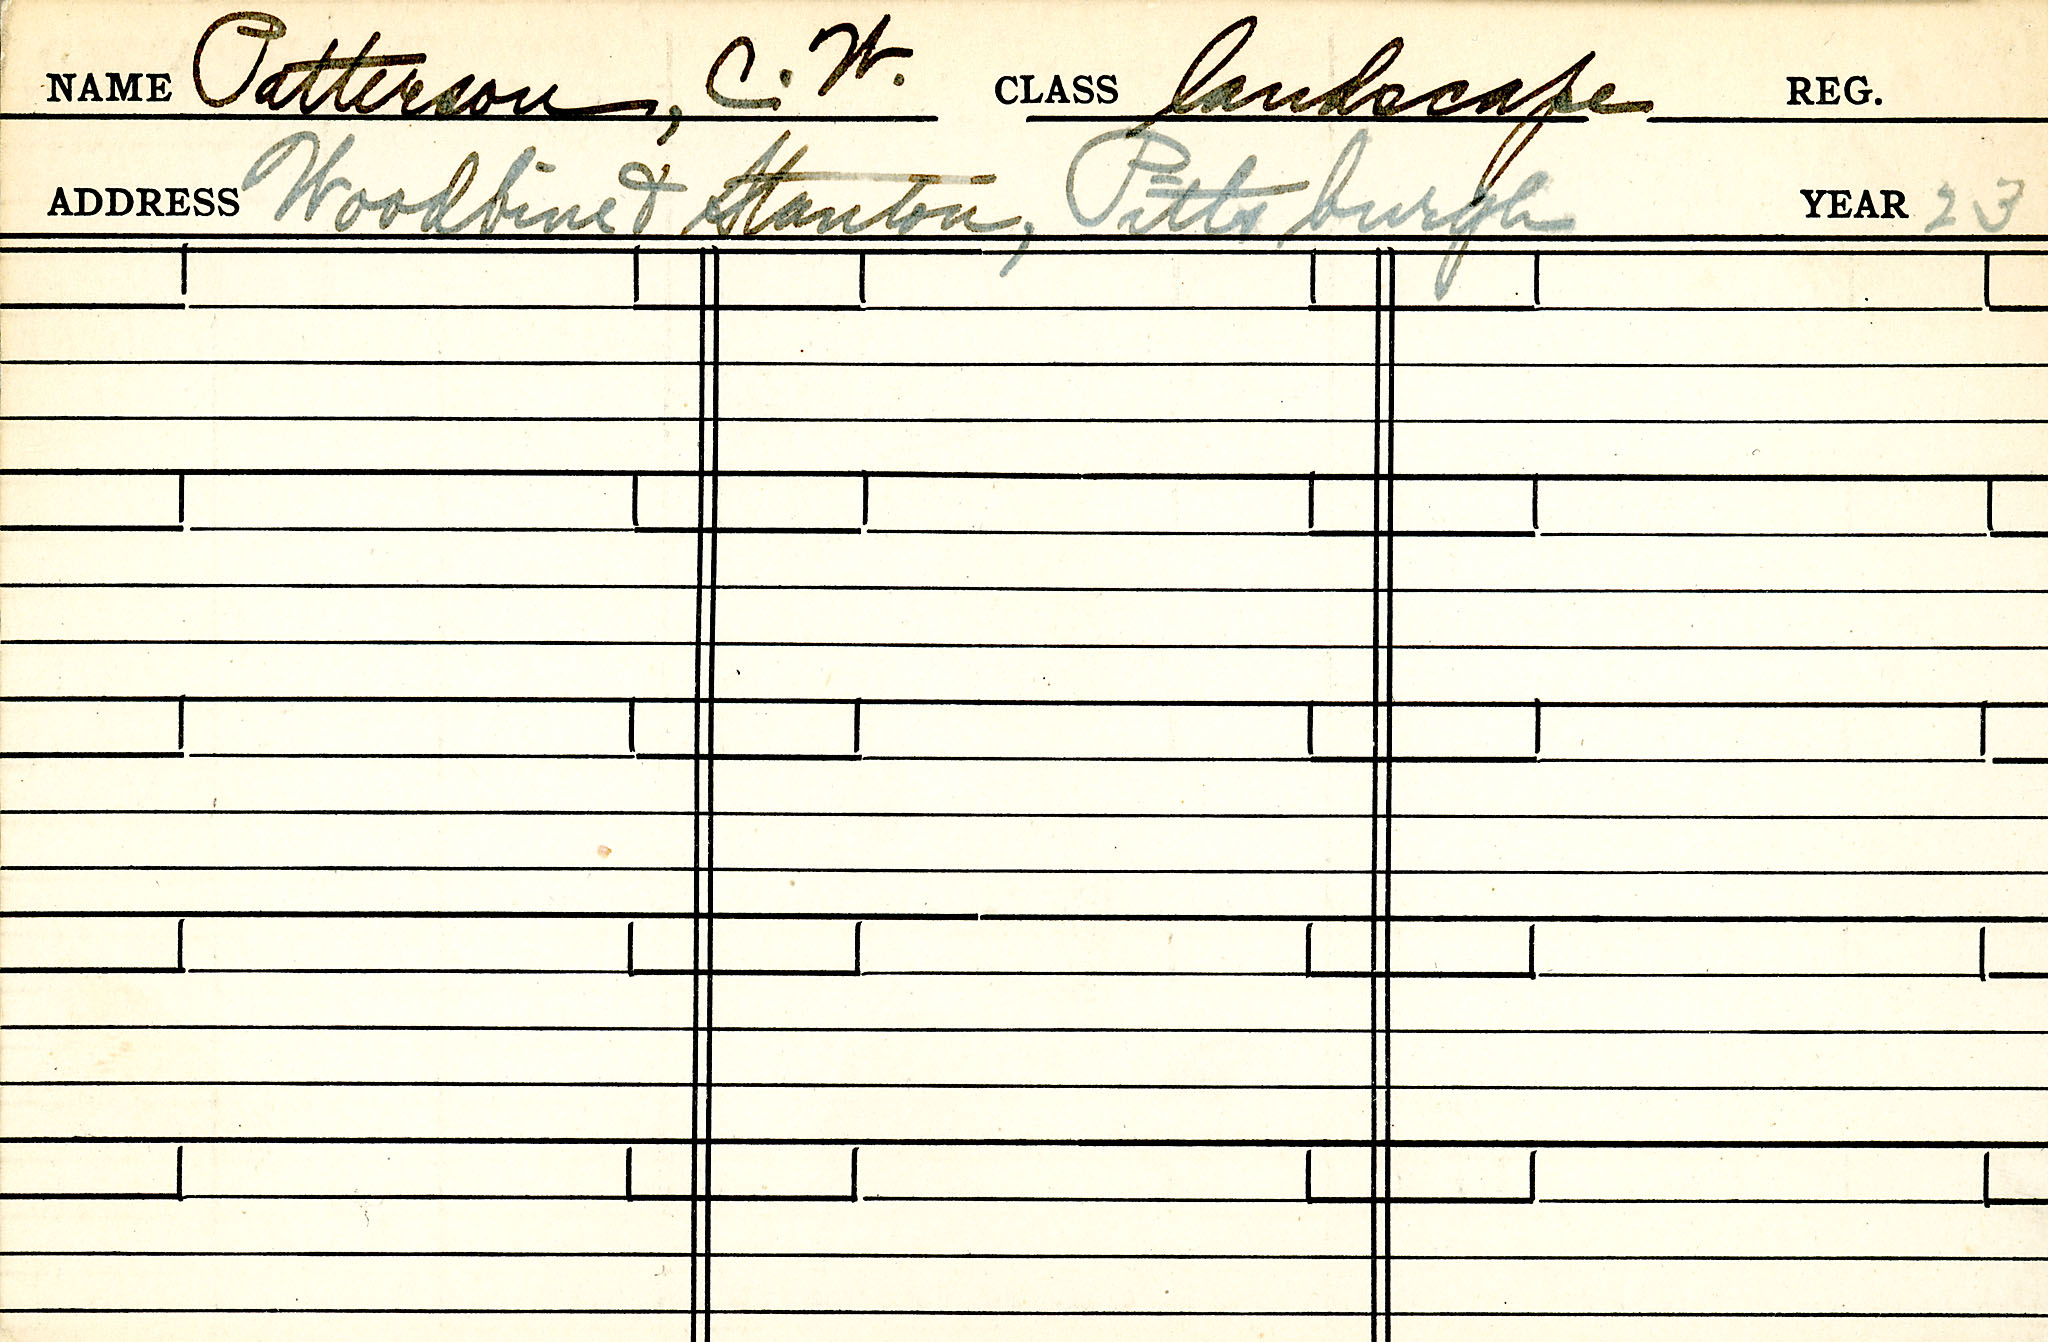 NAME Patterson, C. W. CLASS landscape REG.
ADDRESS Woodbine & Stanton, Pittsburgh YEAR 23